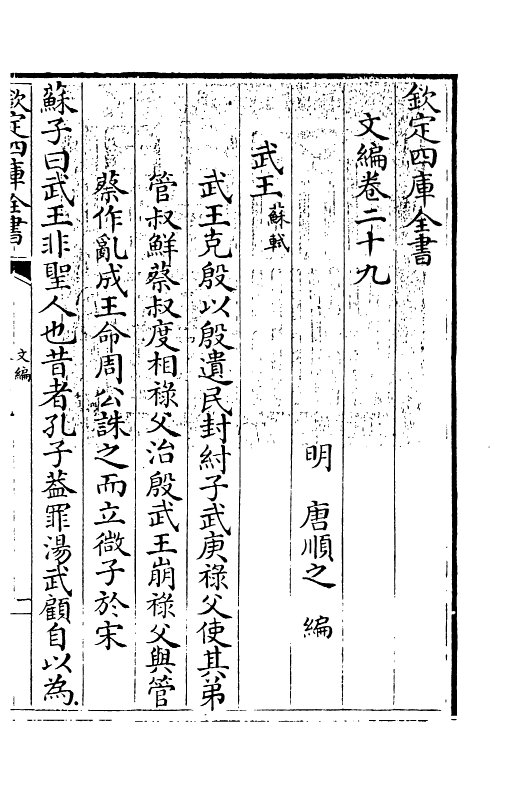 欽定四庫全書
文編卷二十九
明 唐順之 編
武王蘇軾
武王克殷以殷遺民封紂子武庚祿父使其弟
管叔鮮蔡叔度相祿父治殷武王崩祿父與管
蔡作亂成王命周公誅之而立微子於宋
蘇子曰武王非聖人也昔者孔子葢罪湯武顧自以為
欽定四庫全書
文編
一